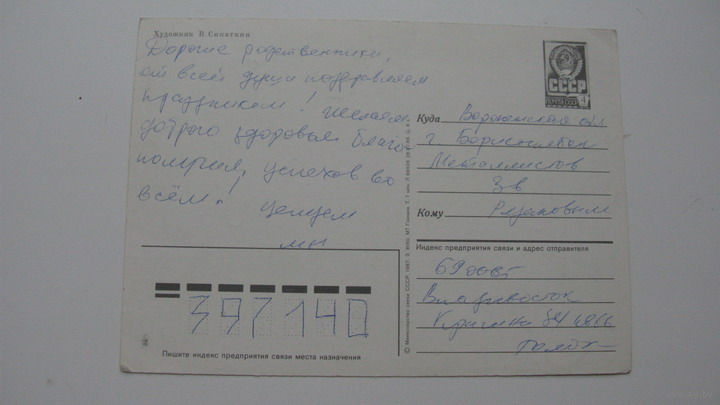 Художник В. Сипаткин
Дорогие родственники,
от всей души поздравляем
праздником! Желаем
доброго здоровья благо
получия, успехов во
всём! Целуем
мы
СССР
Куда Воронежская обл
г Борисоглебск
Металлистов
3в
Кому Рязановым
Индекс предприятия связи и адрес отправителя
Владивосток
397140
Пишите индекс предприятия связи места назначения